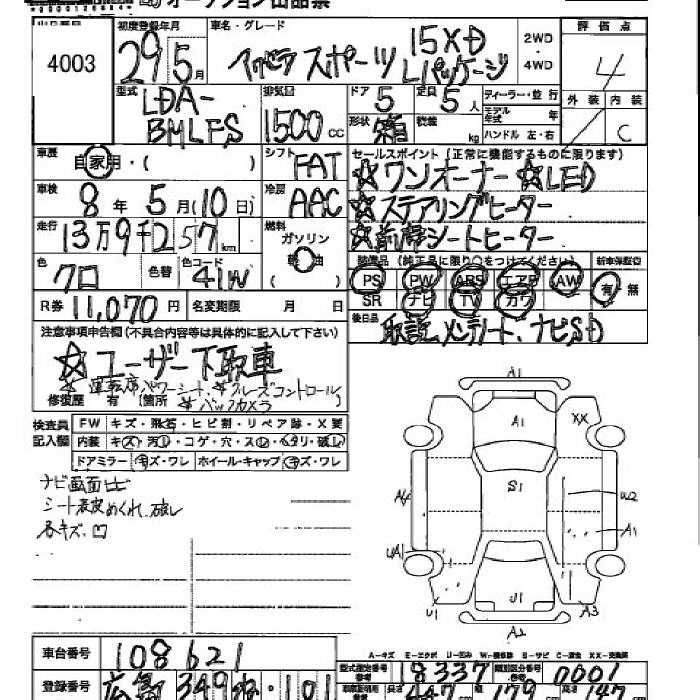 オークション出品票
4003
初度登録年月
29年5月
車名・グレード
アクセラスポーツ 15XD
Lパッケージ
2WD
・
4WD
評価点
4
外装 内装
C
型式
LDA-
BMLFS
排気量
1500cc
ドア 5
定員 5人
形状 箱
積載 kg
ディーラー・並行
モデル年式 年
ハンドル 左・右
車歴
自家用・( )
シフト
FAT
セールスポイント(正常に機能するものに限ります)
☆ワンオーナー ☆LED
☆ステアリングヒーター
☆前席シートヒーター
車検
8年5月(10日)
冷房
AAC
走行
13万9千257km
燃料
ガソリン
軽油
色
クロ
色替
色コード
41W
装備品(純正品に限り○をつけてください)
新車保証書
PS PW ABS エアB AW
有・無
SR ナビ TV カワ
R券 11,070円
名変期限 月 日
後日品
取説、メンテノート、ナビSD
注意事項申告欄(不具合内容等は具体的に記入して下さい)
☆ユーザー下取車
*運転席パワーシート、*クルーズコントロール
修復歴 有 (箇所 )
*バックカメラ
検査員記入欄
FW キズ・飛石・ヒビ割・リペア跡・X要
内装 キズ・汚れ・コゲ・穴・スレ・ヘタリ・破レ
ドアミラー キズ・ワレ ホイール・キャップ キズ・ワレ
ナビ画面ヒビ
シート表皮めくれ、破レ
各キズ、凹
A1
A1
XX
A4
S1
W2
A1
UA1
U1
U1
A3
A2
A-キズ E-エクボ U-凹み W-補修跡 S-サビ C-腐食 XX-交換済
車台番号
108621
型式指定番号 18337
類別区分番号 0001
登録番号